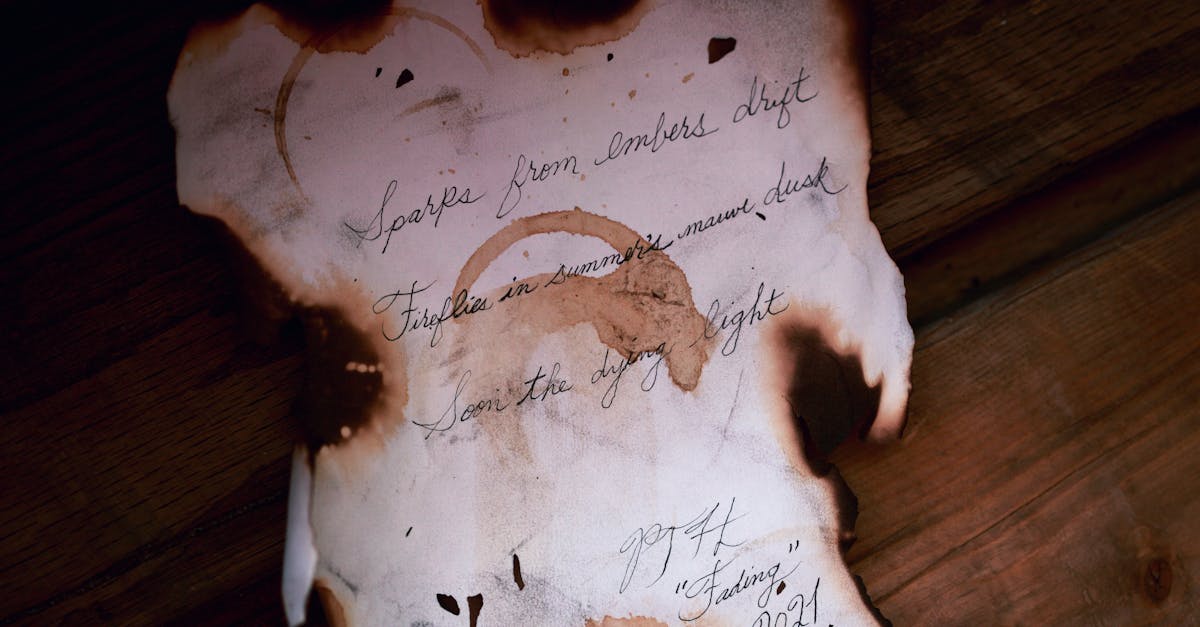 Sparks from embers drift
Fireflies in summer's mauve dusk
Soon the dying light
"Fading"
2021